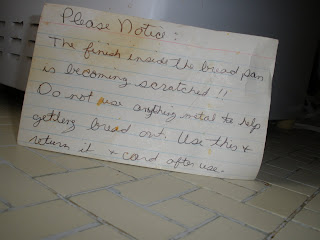 Please Notice:
The finish inside the bread pan
is becoming scratched!!
Do not use anything metal to help
getting bread out. Use this &
return it & card after use.